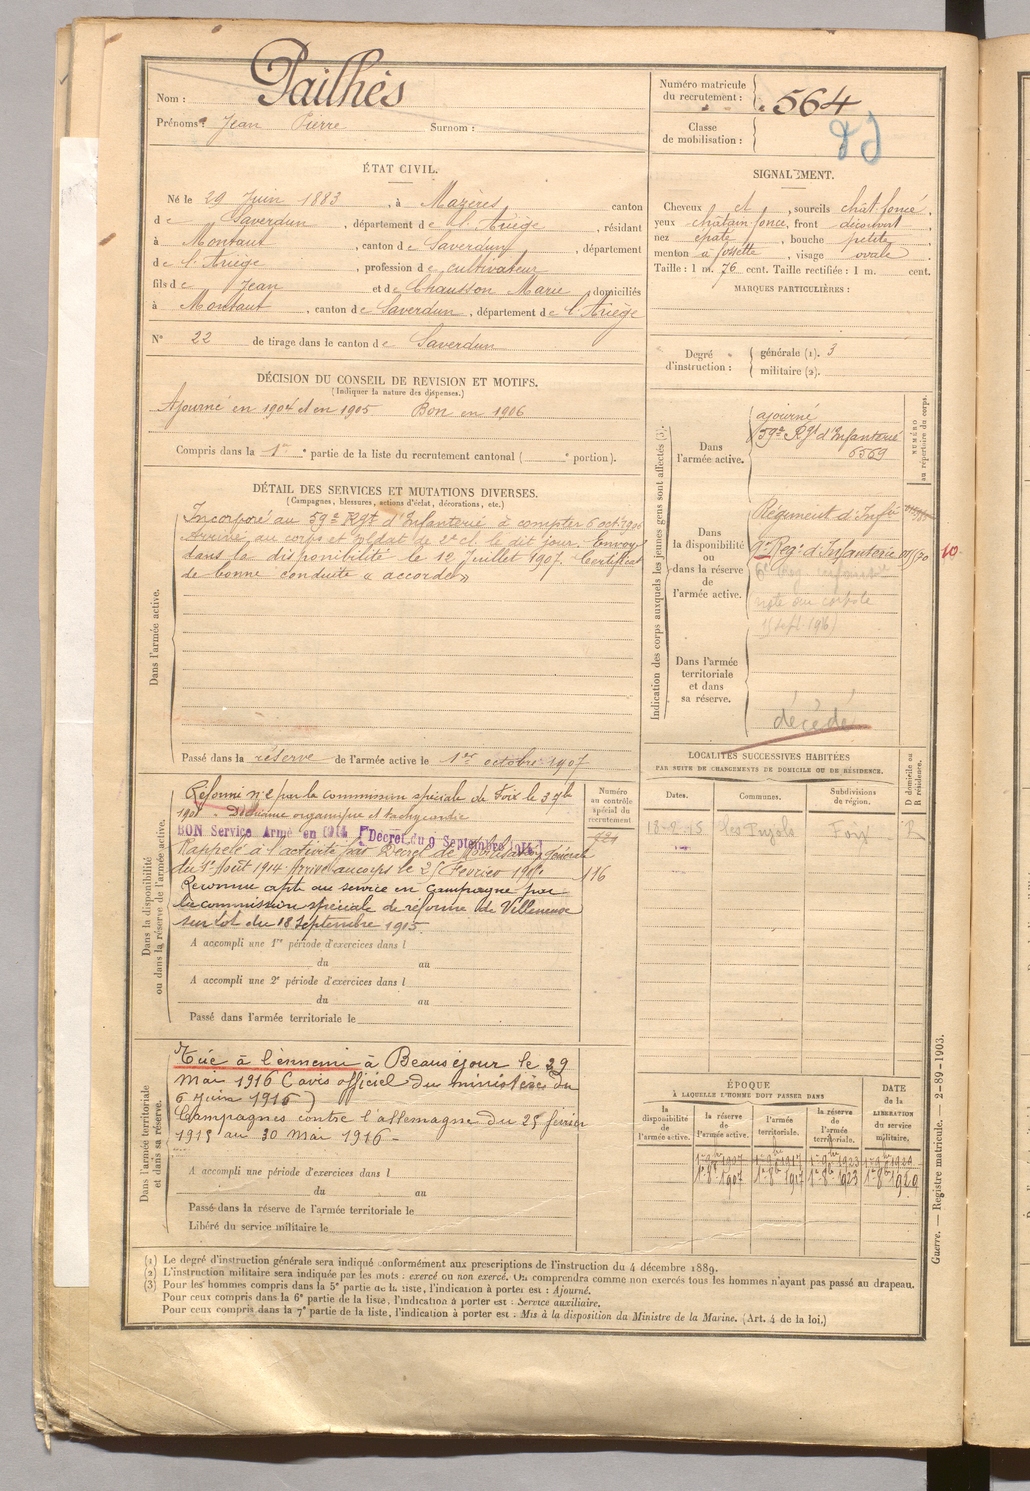 Nom : Pailhès
Prénoms : Jean Pierre Surnom :
Numéro matricule du recrutement : 564
Classe de mobilisation :
ÉTAT CIVIL.
Né le 29 Juin 1883, à Mazères, canton
de Saverdun, département de l'Ariège, résidant
à Montaut, canton de Saverdun, département
de l'Ariège, profession de cultivateur
fils de Jean et de Chausson Marie, domiciliés
à Montaut, canton de Saverdun, département de l'Ariège
N° 22 de tirage dans le canton de Saverdun
SIGNALEMENT.
Cheveux et, sourcils chât. foncé,
yeux châtain-foncé, front découvert,
nez épaté, bouche petite,
menton à fossette, visage ovale.
Taille : 1 m. 76 cent. Taille rectifiée : 1 m. cent.
MARQUES PARTICULIÈRES :
Degré d'instruction : générale (1). 3
militaire (2).
DÉCISION DU CONSEIL DE REVISION ET MOTIFS.
(Indiquer la nature des dispenses.)
Ajourné en 1904 et en 1905 Bon en 1906
Compris dans la 1re partie de la liste du recrutement cantonal ( e portion).
DÉTAIL DES SERVICES ET MUTATIONS DIVERSES.
(Campagnes, blessures, actions d'éclat, décorations, etc.)
Dans l'armée active.
Incorporé au 59e Rgt d'Infanterie à compter 6 oct. 1906
Arrivé au corps et soldat de 2e cl. le dit jour. Envoyé
dans la disponibilité le 12 Juillet 1907. Certificat
de bonne conduite « accordé »
Passé dans la réserve de l'armée active le 1er octobre 1907
Indication des corps auxquels les jeunes gens sont affectés (3).
NUMÉRO au répertoire du corps.
Dans l'armée active.
ajourné
59e Rgt d'Infanterie
6569
Dans la disponibilité ou dans la réserve de l'armée active.
Régiment d'Inf
Reg. d'Infanterie
10
Dans l'armée territoriale et dans sa réserve.
décédé
Dans la disponibilité ou dans la réserve de l'armée active.
Réformé n° 2 par la commission spéciale de Foix le 3 9bre
organique et tachycardie
BON Service Armé en 1914 [Décret du 9 Septembre 1914]
Rappelé à l'activité par Décret de Mobilisation Générale
du 1er Août 1914 Arrivé au corps le 25 Février
Reconnu apte au service en campagne par
la commission spéciale de réforme de Villeneuve
sur Lot du 18 Septembre 1915.
Numéro au contrôle spécial du recrutement
116
A accompli une 1re période d'exercices dans l
du au
A accompli une 2e période d'exercices dans l
du au
Passé dans l'armée territoriale le
LOCALITÉS SUCCESSIVES HABITÉES
PAR SUITE DE CHANGEMENTS DE DOMICILE OU DE RÉSIDENCE.
Dates. Communes. Subdivisions de région. D domicile ou R résidence.
18-2-15 Les Pujols Foix R
Dans l'armée territoriale et dans sa réserve.
Tué à l'ennemi à Beauséjour le 29
Mai 1916 (avis officiel du ministère du
6 Juin 1916)
Campagnes contre l'allemagne du 25 février
1915 au 30 Mai 1916 -
A accompli une période d'exercices dans l
du au
Passé dans la réserve de l'armée territoriale le
Libéré du service militaire le
ÉPOQUE
À LAQUELLE L'HOMME DOIT PASSER DANS
la disponibilité de l'armée active. la réserve de l'armée active. l'armée territoriale. la réserve de l'armée territoriale.
DATE de la LIBÉRATION du service militaire.
1er 8bre 1907 1er 8bre 1917 1er 8bre 1923 1er 8bre 1929
(1) Le degré d'instruction générale sera indiqué conformément aux prescriptions de l'instruction du 4 décembre 1889.
(2) L'instruction militaire sera indiquée par les mots : exercé ou non exercé. On comprendra comme non exercés tous les hommes n'ayant pas passé au drapeau.
(3) Pour les hommes compris dans la 5e partie de la liste, l'indication à porter est : Ajourné.
Pour ceux compris dans la 6e partie de la liste, l'indication à porter est : Service auxiliaire.
Pour ceux compris dans la 7e partie de la liste, l'indication à porter est : Mis à la disposition du Ministre de la Marine. (Art. 4 de la loi.)
Guerre. — Registre matricule. — 2-89-1903.